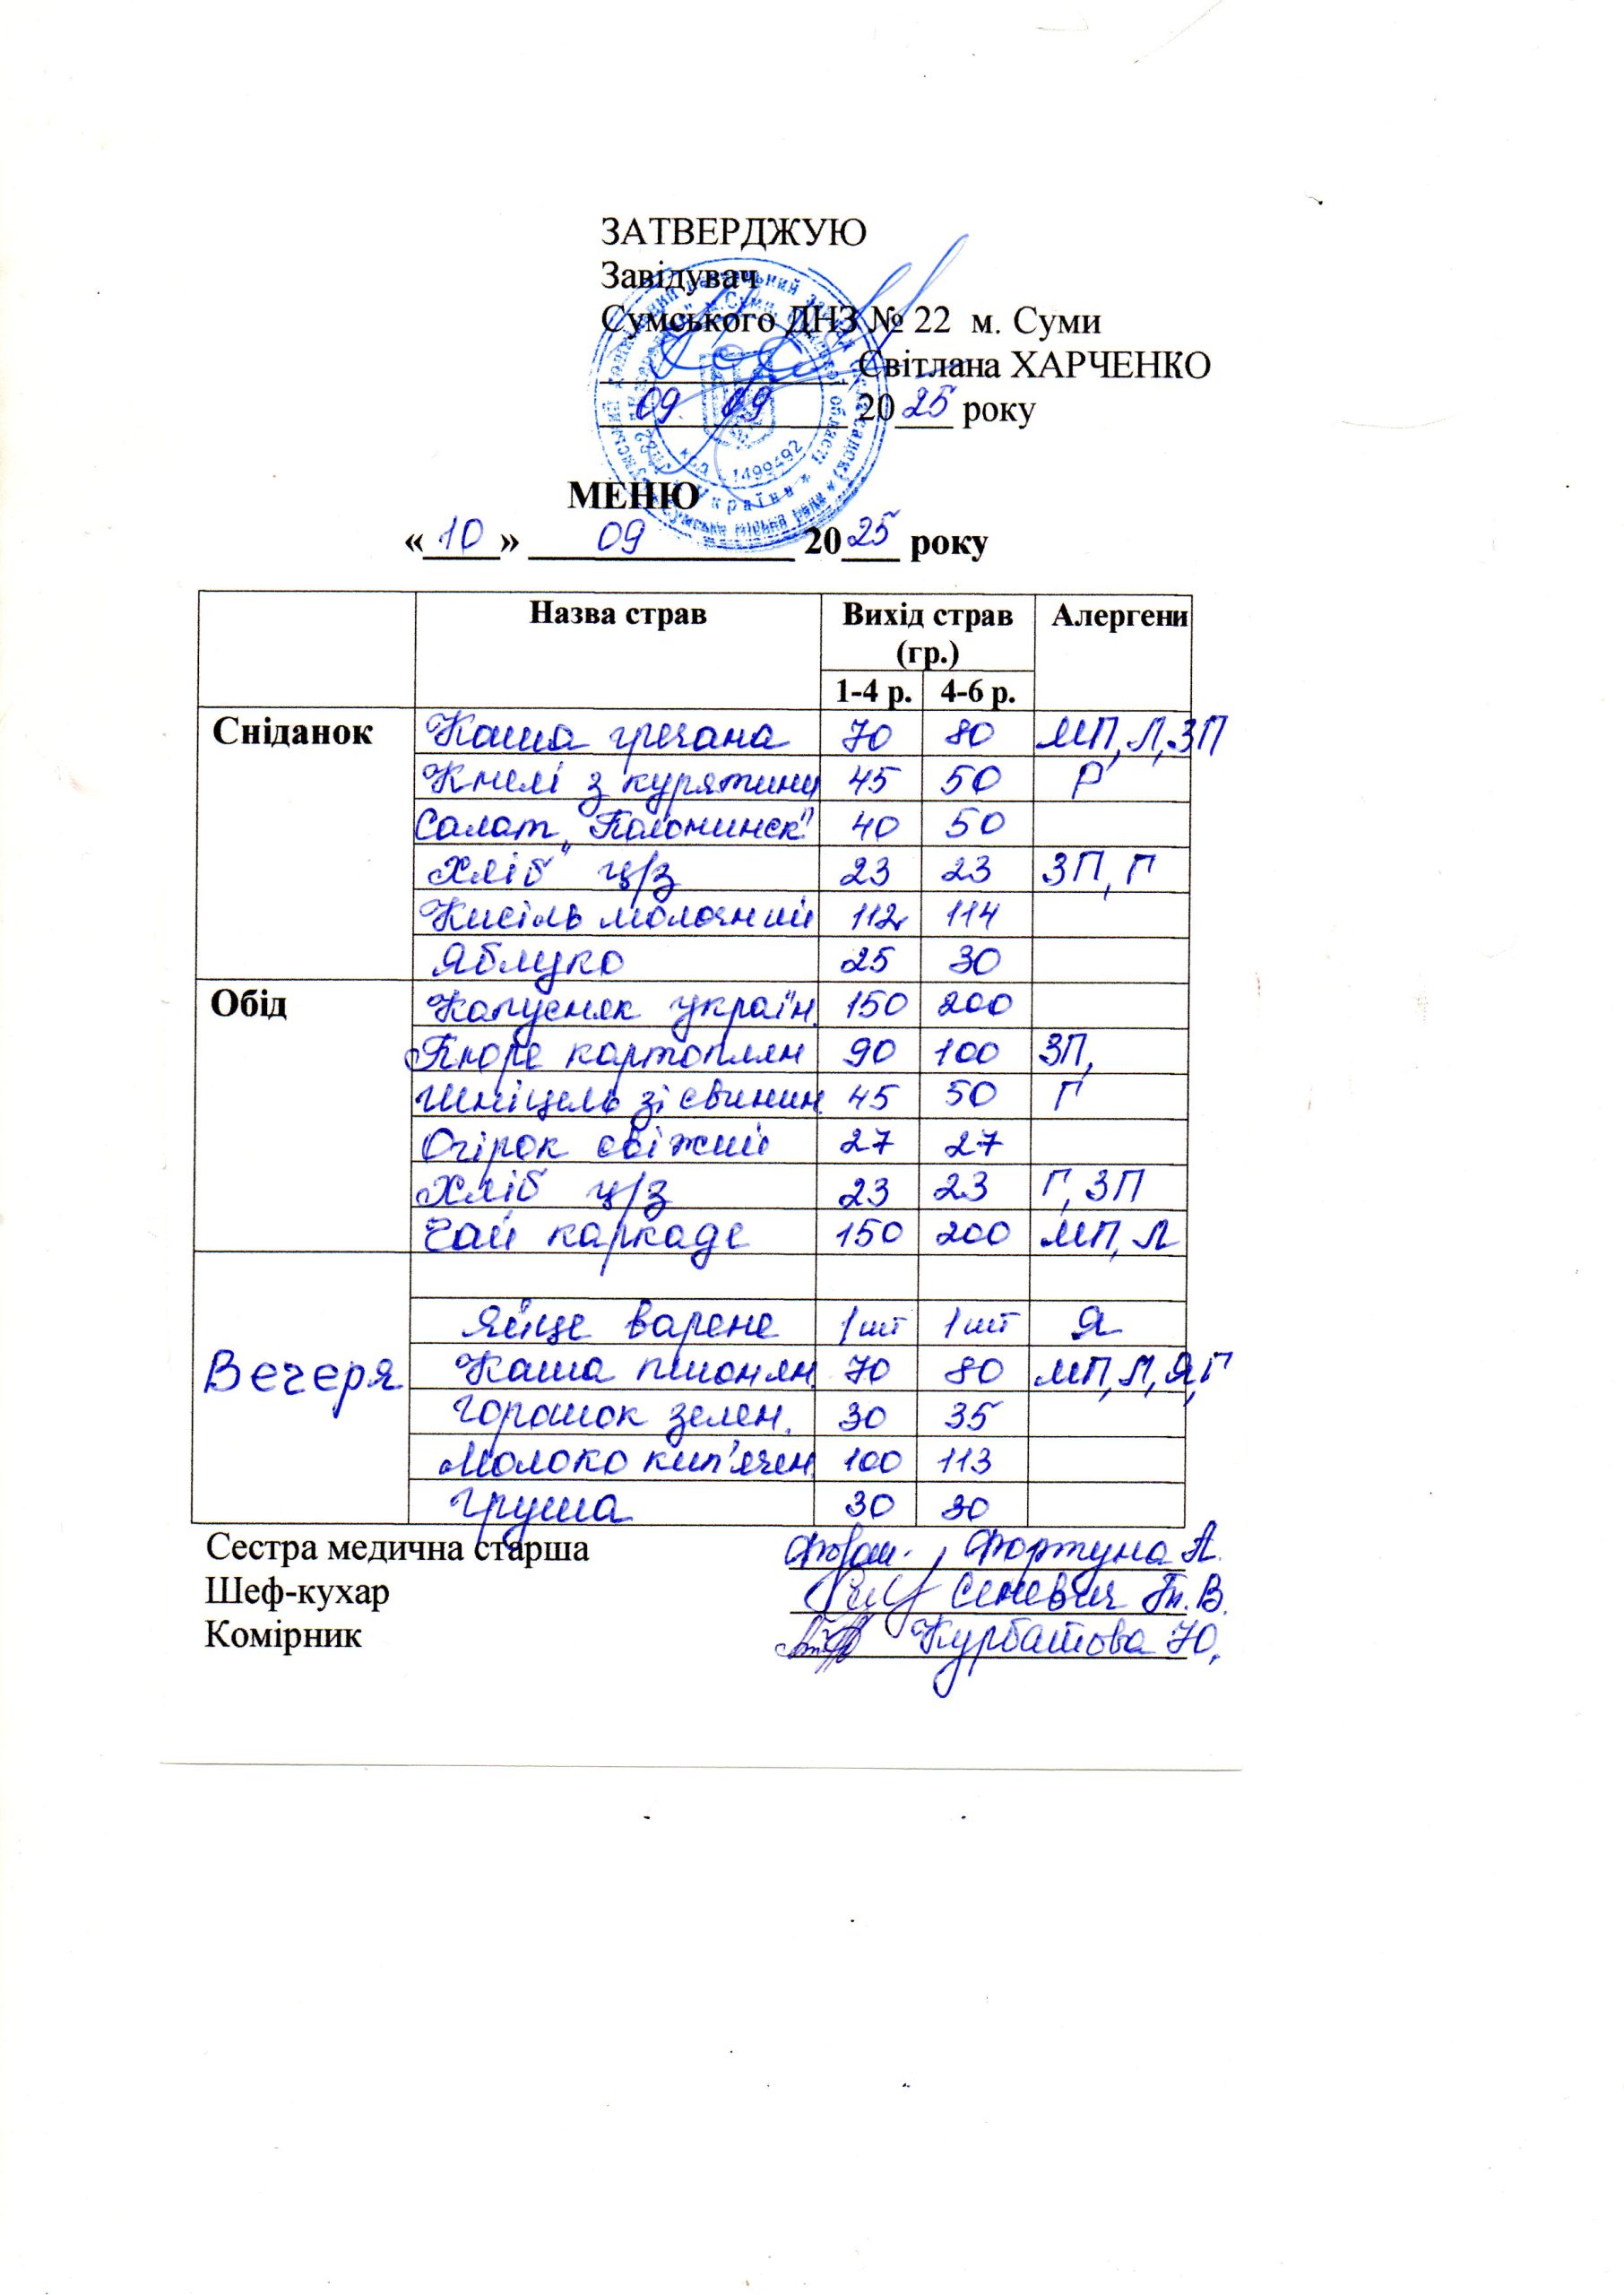 ЗАТВЕРДЖУЮ
Завідувач
Сумського ДНЗ № 22 м. Суми
Світлана ХАРЧЕНКО
09 09 2025 року
МЕНЮ
«10» 09 2025 року
Назва страв Вихід страв (гр.) Алергени
1-4 р. 4-6 р.
Сніданок Каша гречана 70 80 МП, Л, ЗП
Кнелі з курятини 45 50 Р
Салат "Полонинск" 40 50
Хліб ц/з 23 23 ЗП, Г
Кисіль молочний 112 114
Яблуко 25 30
Обід Капусняк україн. 150 200
Пюре картоплян 90 100 ЗП,
Шніцель зі свинин. 45 50 Г
Огірок свіжий 27 27
Хліб ц/з 23 23 Г, ЗП
Чай каркаде 150 200 МП, Л
Вечеря
Яйце варене 1 шт 1 шт Я
Каша пшонян. 70 80 МП, Л, Я, Г
Горошок зелен. 30 35
Молоко кип'ячен. 100 113
Груша 30 30
Сестра медична старша Фортуна А.
Шеф-кухар Сеневич Т. В.
Комірник Курбатова Ю.